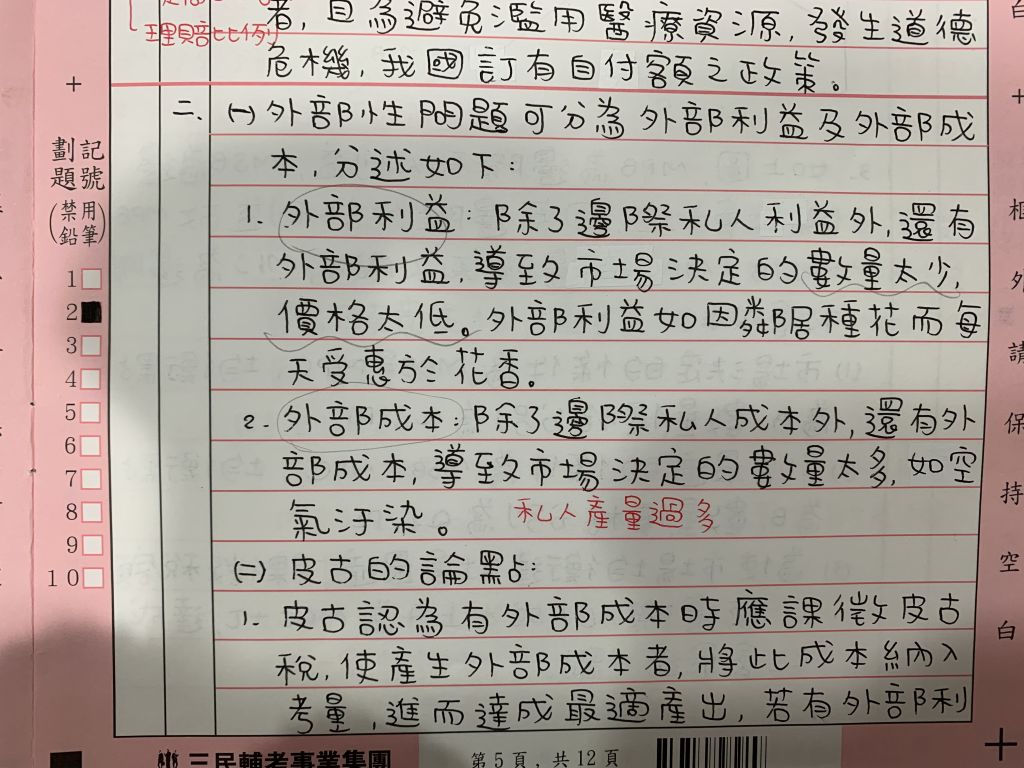 者,且為避免濫用醫療資源,發生道德
理賠比例
危機,我國訂有自付額之政策。
二、(一)外部性問題可分為外部利益及外部成
本,分述如下:
1. 外部利益:除了邊際私人利益外,還有
外部利益,導致市場決定的數量太少,
價格太低。外部利益如因鄰居種花而每
天受惠於花香。
2. 外部成本:除了邊際私人成本外,還有外
部成本,導致市場決定的數量太多,如空
氣汙染。 私人產量過多
(二)皮古的論點:
1. 皮古認為有外部成本時應課徵皮古
稅,使產生外部成本者,將此成本納入
考量,進而達成最適產出,若有外部利
劃記
題號
(禁用
鉛筆)
1
2
3
4
5
6
7
8
9
10
三民輔考事業集團
第5頁,共12頁
框
外
請
保
持
空
白